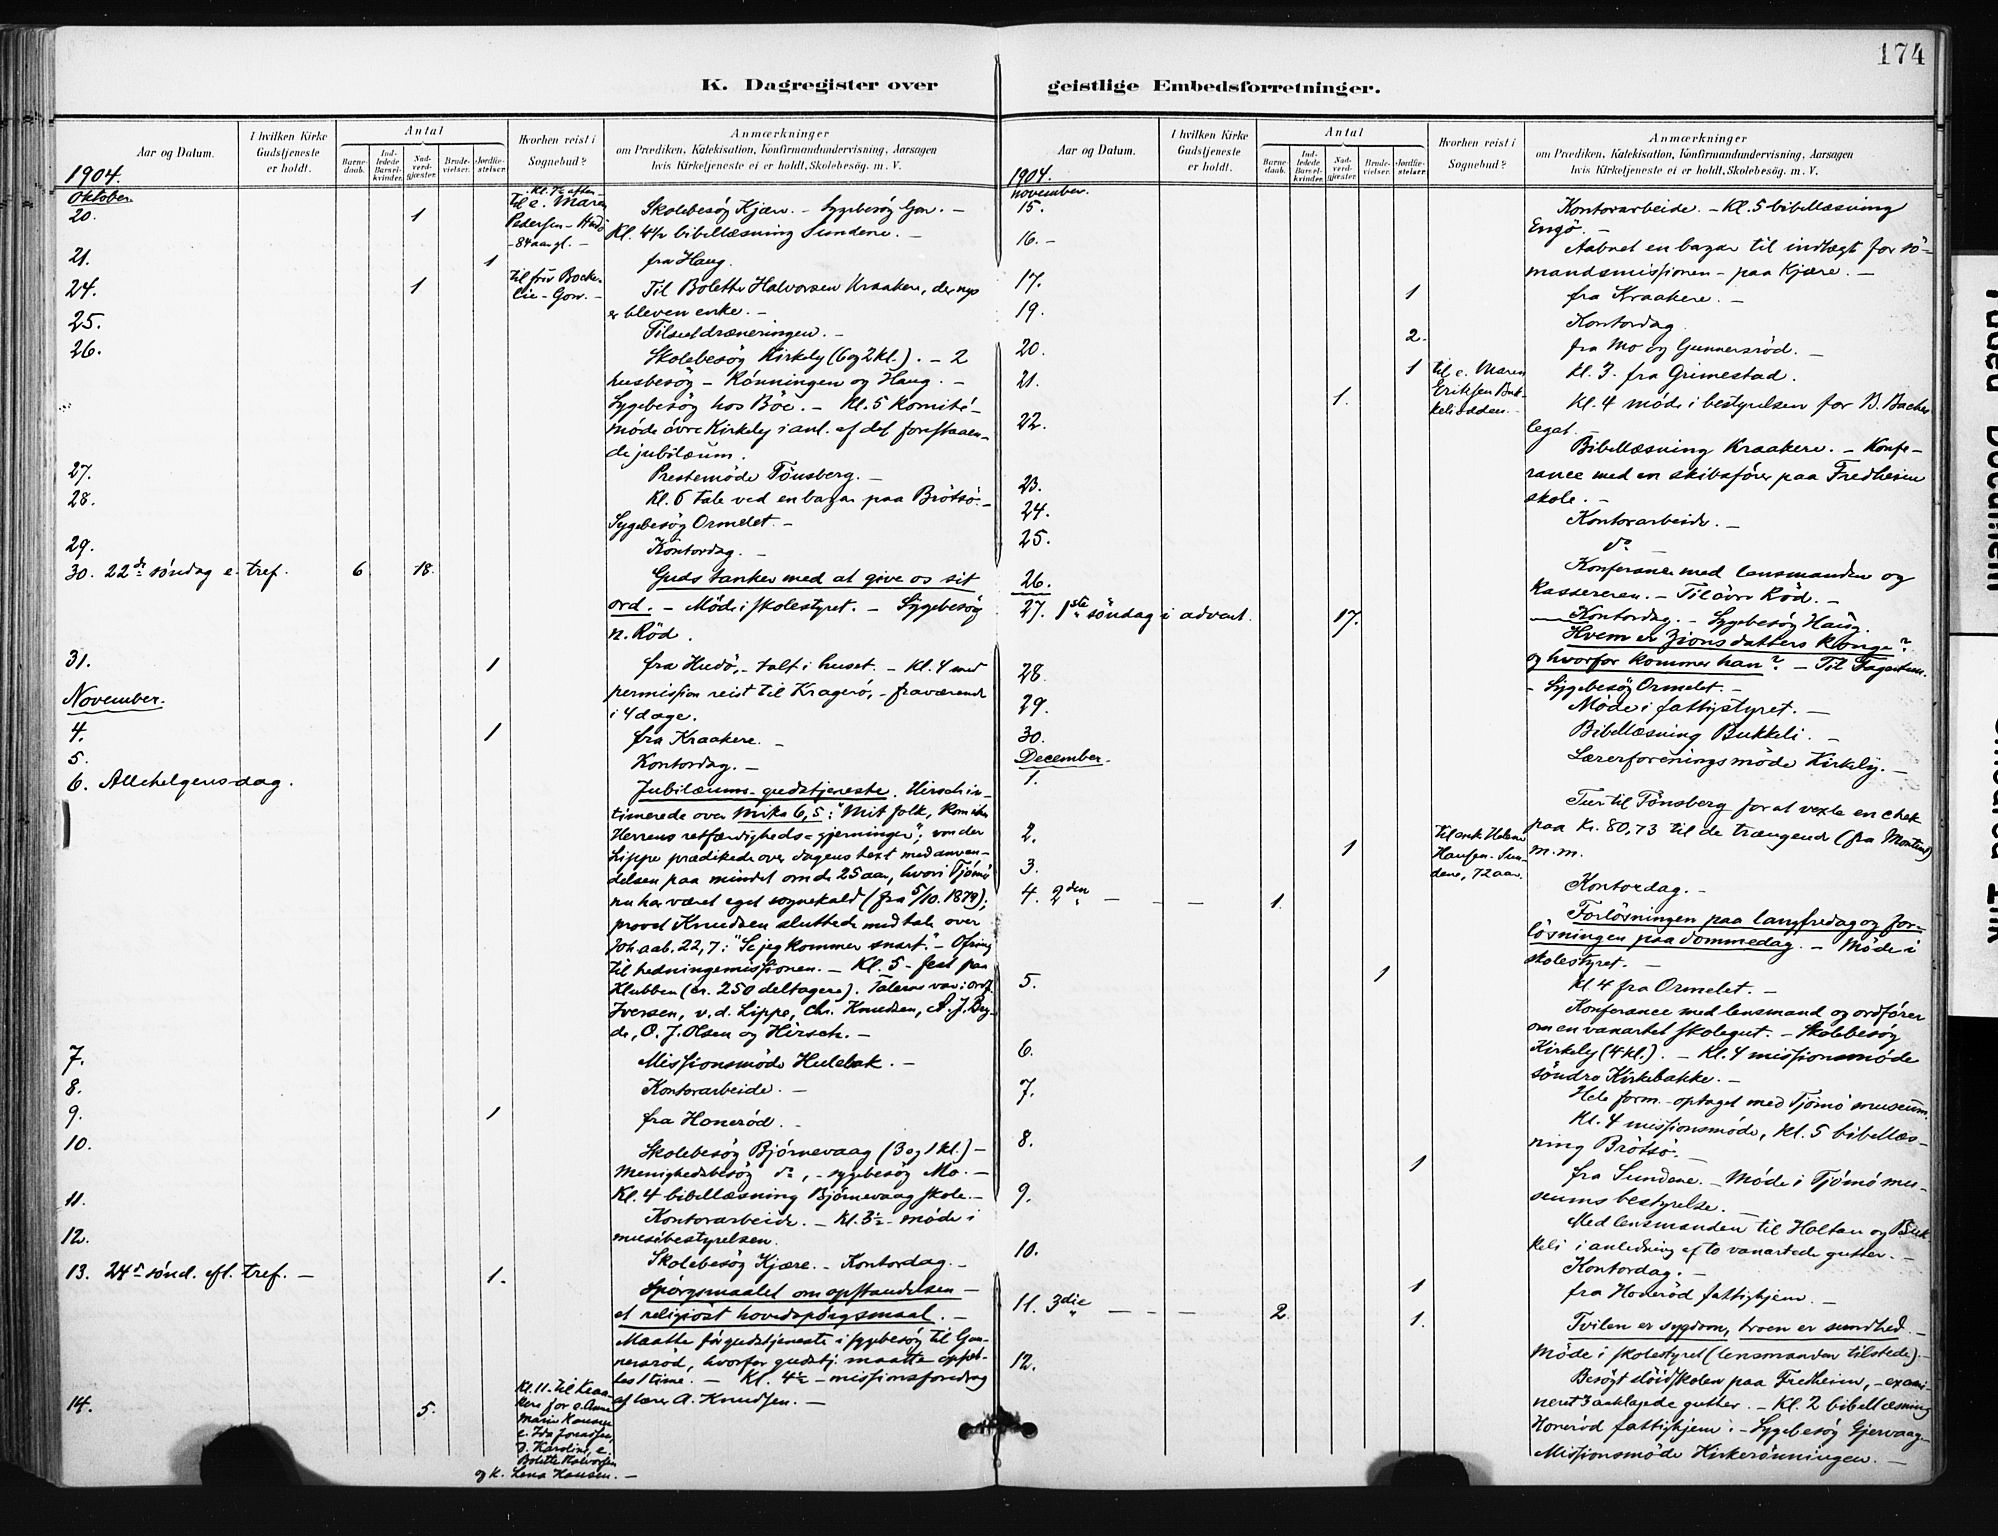 174
K. Dagregister over geistlige Embedsforretninger.
Aar og Datum.
I hvilken Kirke Gudstjeneste er holdt.
Antal
Barnedaab.
Indledede Barselkvinder.
Nadverdgjæster.
Brudevielser.
Jordfæstelser.
Hvorhen reist i Sognebud?
Anmærkninger
om Prædiken, Katekisation, Konfirmandundervisning, Aarsagen
hvis Kirketjeneste ei er holdt, Skolebesøg. m. V.
1904.
Oktober.
20. 1
til e. Maren
Pedersen - Hudö
- 84 aar gl. -
Skolebesög Kjære. - Sygebesög Gon. -
Kl. 4½ bibellæsning Sundene. -
21. 1 fra Haug.
24. 1
Til Bolette Halvorsen Kraakere, der nys
er bleven enke. -
25.
26. Skolebesög Kirkely (6 og 2 kl.). - 2
husbesög - Rönningen og Haug. -
Sygebesög hos Böe. - Kl. 5 komité-
möde övre Kirkely i anl. af det forestaaen-
de jubilæum.
27. Prestemöde Tönsberg. -
28. Kl. 6 tale ved en bazar paa Brötsö. -
Sygebesög Ormelet. -
29. Kontordag. -
30. 22de söndag e. tref. 6 18.
Guds tanker med at give os sit
ord. - Möde i skolestyret. - Sygebesög
n. Röd.
31. 1 fra Hudö, - talt i huset. - Kl. 4 med
permission reist til Kragerö, - fraværende
i 4 dage.
November.
4. 1 fra Kraakere. -
5. Kontordag. -
6. Allehelgensdag.
Jubilæums-gudstjeneste. Hirsch in-
timerede over Mika 6,5: "Mit folk, kom ihu
Herrens retfærdigheds-gjerninger"; von der
Lippe prædikede over dagens text med anven-
delsen paa mindet om de 25 aar, hvori Tjömö
nu har været eget sognekald (fra 5/10. 1879);
provst Knudsen sluttede med tale over
Joh. aab. 22,7: "Se jeg kommer snart." - Ofring
til hedningemissionen. - Kl. 5 - fest paa
Klubben (ca. 250 deltagere). Talerne var: ordf.
Iversen, v. d. Lippe, Chr. Knudsen, A. J. Bry-
de, O. J. Olsen og Hirsch. -
7. Missionsmöde Hulebak. -
8. Kontorarbeide. -
9. 1 fra Honeröd. -
10. Skolebesög Bjørnevaag (3 og 1 kl.) -
Menighedsbesög do, - sygebesög Mo. -
Kl. 4 bibellæsning Bjørnevaag skole. -
11. Kontorarbeide. - Kl. 3½ - möde i
musibestyrelsen.
12. Skolebesög Kjære. - Kontordag. -
13. 24de sönd. eft. tref. - 1.
Spörgsmaalet om opstandelsen -
et religiöst hovedspörgsmaal. -
Maatte för gudstjeneste i sygebesög til Gun-
nersröd, hvorfor gudstj. maatte opsæt-
tes 1 time. - Kl. 4½ - missionsforedrag
af lærer A. Knudsen. -
14. 5.
Kl. 11. til Kraa-
kere for e. Anne
Marie
e. Ida
Karoline, e.
Bolette Halvorsen
og k. Lena Hansen. -
Aar og Datum.
I hvilken Kirke Gudstjeneste er holdt.
Antal
Barnedaab.
Indledede Barselkvinder.
Nadverdgjæster.
Brudevielser.
Jordfæstelser.
Hvorhen reist i Sognebud?
Anmærkninger
om Prædiken, Katekisation, Konfirmandundervisning, Aarsagen
hvis Kirketjeneste ei er holdt, Skolebesøg. m. V.
1904.
November.
15. Kontorarbeide. - Kl. 5 bibellæsning
Engö. -
16. - Aabnet en bazar til indtægt for sö-
mandsmissionen - paa Kjære. -
17. 1 fra Kraakere. -
19. Kontordag.
20. 2. fra Mo og Gunnersröd. -
21. 1 Kl. 3. fra Grimestad.
1.
til e. Maren
Eriksen Buk-
kelisodden. -
Kl. 4 möde i bestyrelsen for B. Backes
legat. -
22. Bibellæsning Kraakere. - Konfe-
rance med en skibsförer paa Fredheim
skole. -
23. Kontorarbeide. -
24. do -
25. Konferance med lensmanden og
kassereren. - Til övre Röd. -
26. Kontordag. - Sygebesög Haug.
27. 1ste söndag i advent. 17.
Hvem er Zions datters konge?
og hvorfor kommer han? - Til Fagertun.
- Sygebesög Ormelet. -
28. Möde i fattigstyret. -
29. Bibellæsning Bukkeli. -
30. Lærerforeningsmöde Kirkely. -
December.
1. Tur til Tönsberg for at vexle en chek
paa Kr. 80,73 til de trængende
m. m.
2. 1
til enk. Helene
Hansen. Sun-
dene, 72 aar.
3. Kontordag. -
4. 2den " - - 1.
Forlösningen paa langfredag og for-
lösningen paa dommedag. - Möde i
skolestyret. -
5. 1 Kl 4 fra Ormelet. -
Konferance med lensmand og ordförer
om en vanartet skolegut. - Skolebesög
Kirkely (4 kl.). - Kl. 4 missionsmöde
söndre Kirkebakke. -
6.
7. Hele form. optaget med Tjömö museum.
Kl. 4 missionsmöde, Kl. 5 bibellæs-
ning Brötsö. -
8. 1 fra Sundene. - Möde i Tjömö mu-
seums bestyrelse. -
9. Med lensmanden til Holtan og Buk-
keli i anledning af to vanartede gutter. -
10. Kontordag. -
1 fra Honeröd fattighjem. -
11. 3die " - - 2. 1.
Tvilen er sygdom, troen er sundhed. -
Möde i skolestyret (lensmanden tilstede). -
12. Besögt slöidskolen paa Fredheim, - exami-
neret 3 anklagede gutter. - Kl. 2 bibellæsning
Honeröd fattighjem. - Sygebesög Gjervaag. -
Missionsmöde Kirkerönningen. -